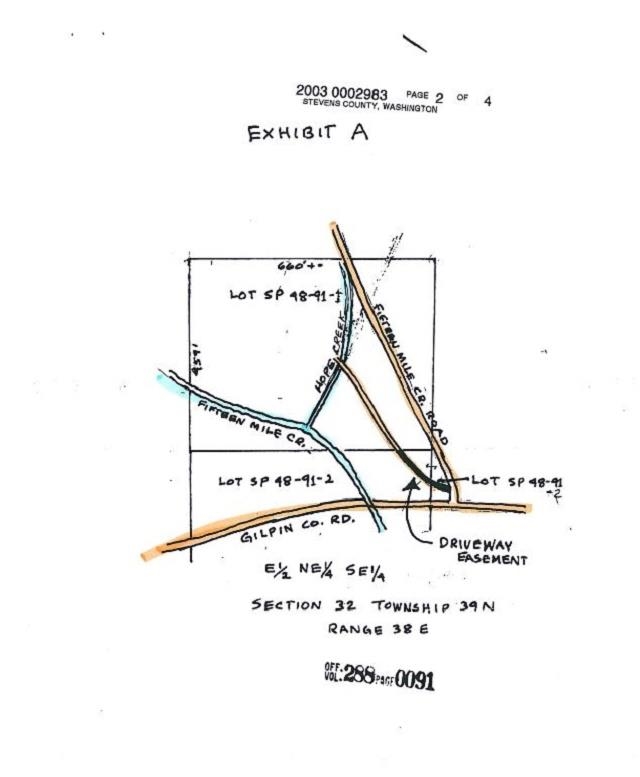 2003 0002983 PAGE 2 OF 4
STEVENS COUNTY, WASHINGTON
EXHIBIT A
660'+-
LOT SP 48-91-1
HOPE CREEK
FIFTEEN MILE CR. ROAD
459'
FIFTEEN MILE CR.
LOT SP 48-91-2
LOT SP 48-91
-2
GILPIN CO. RD.
DRIVEWAY
EASEMENT
E½ NE¼ SE¼
SECTION 32 TOWNSHIP 39 N
RANGE 38 E
OFF. VOL. 288 PAGE 0091